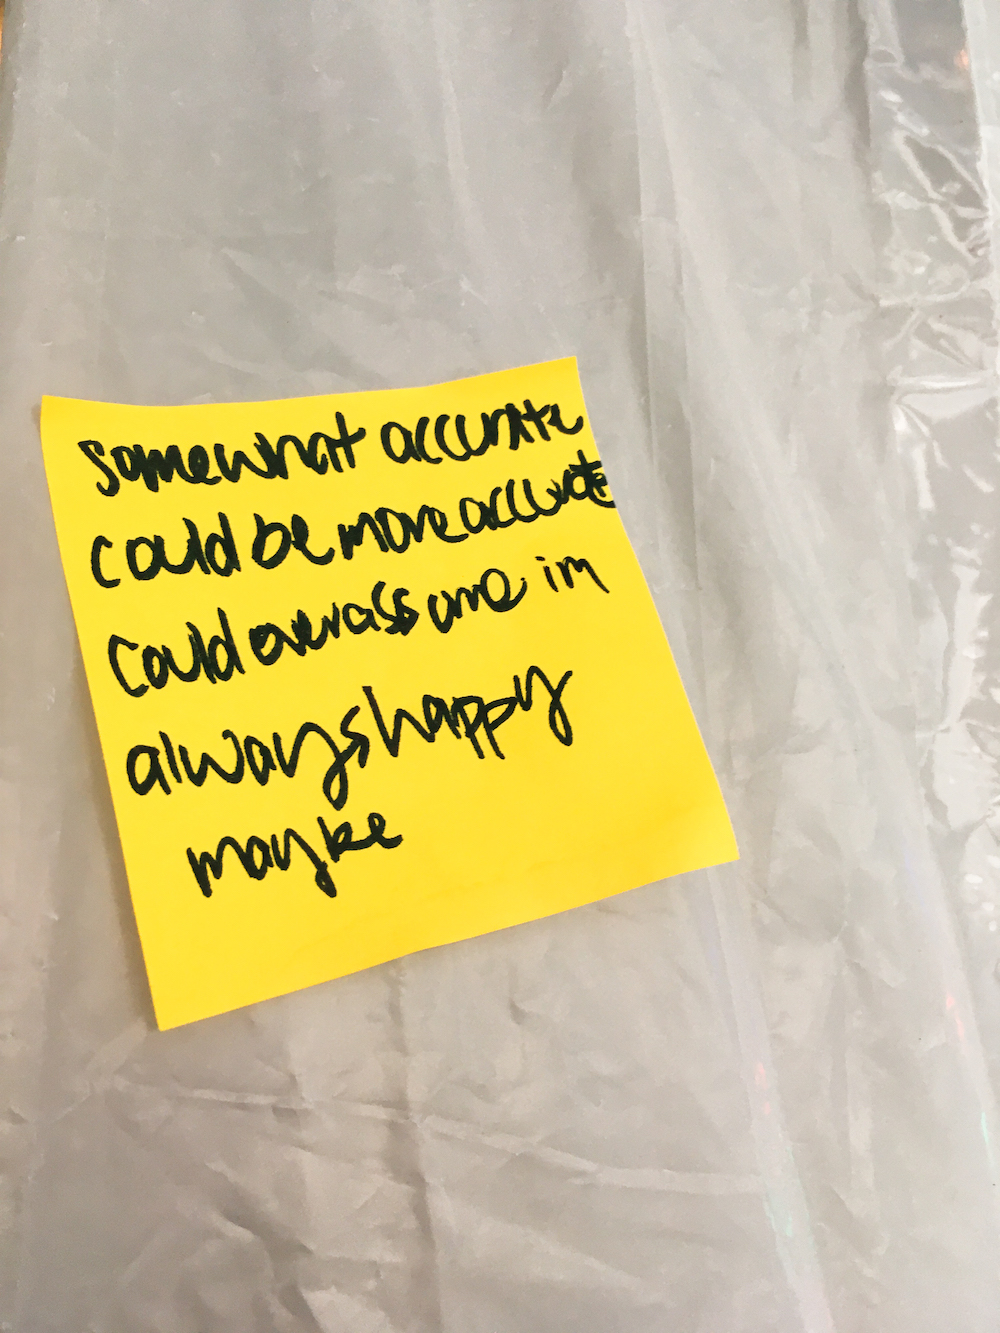 somewhat accurate
could be more accurate
Could overassume im
always happy
maybe